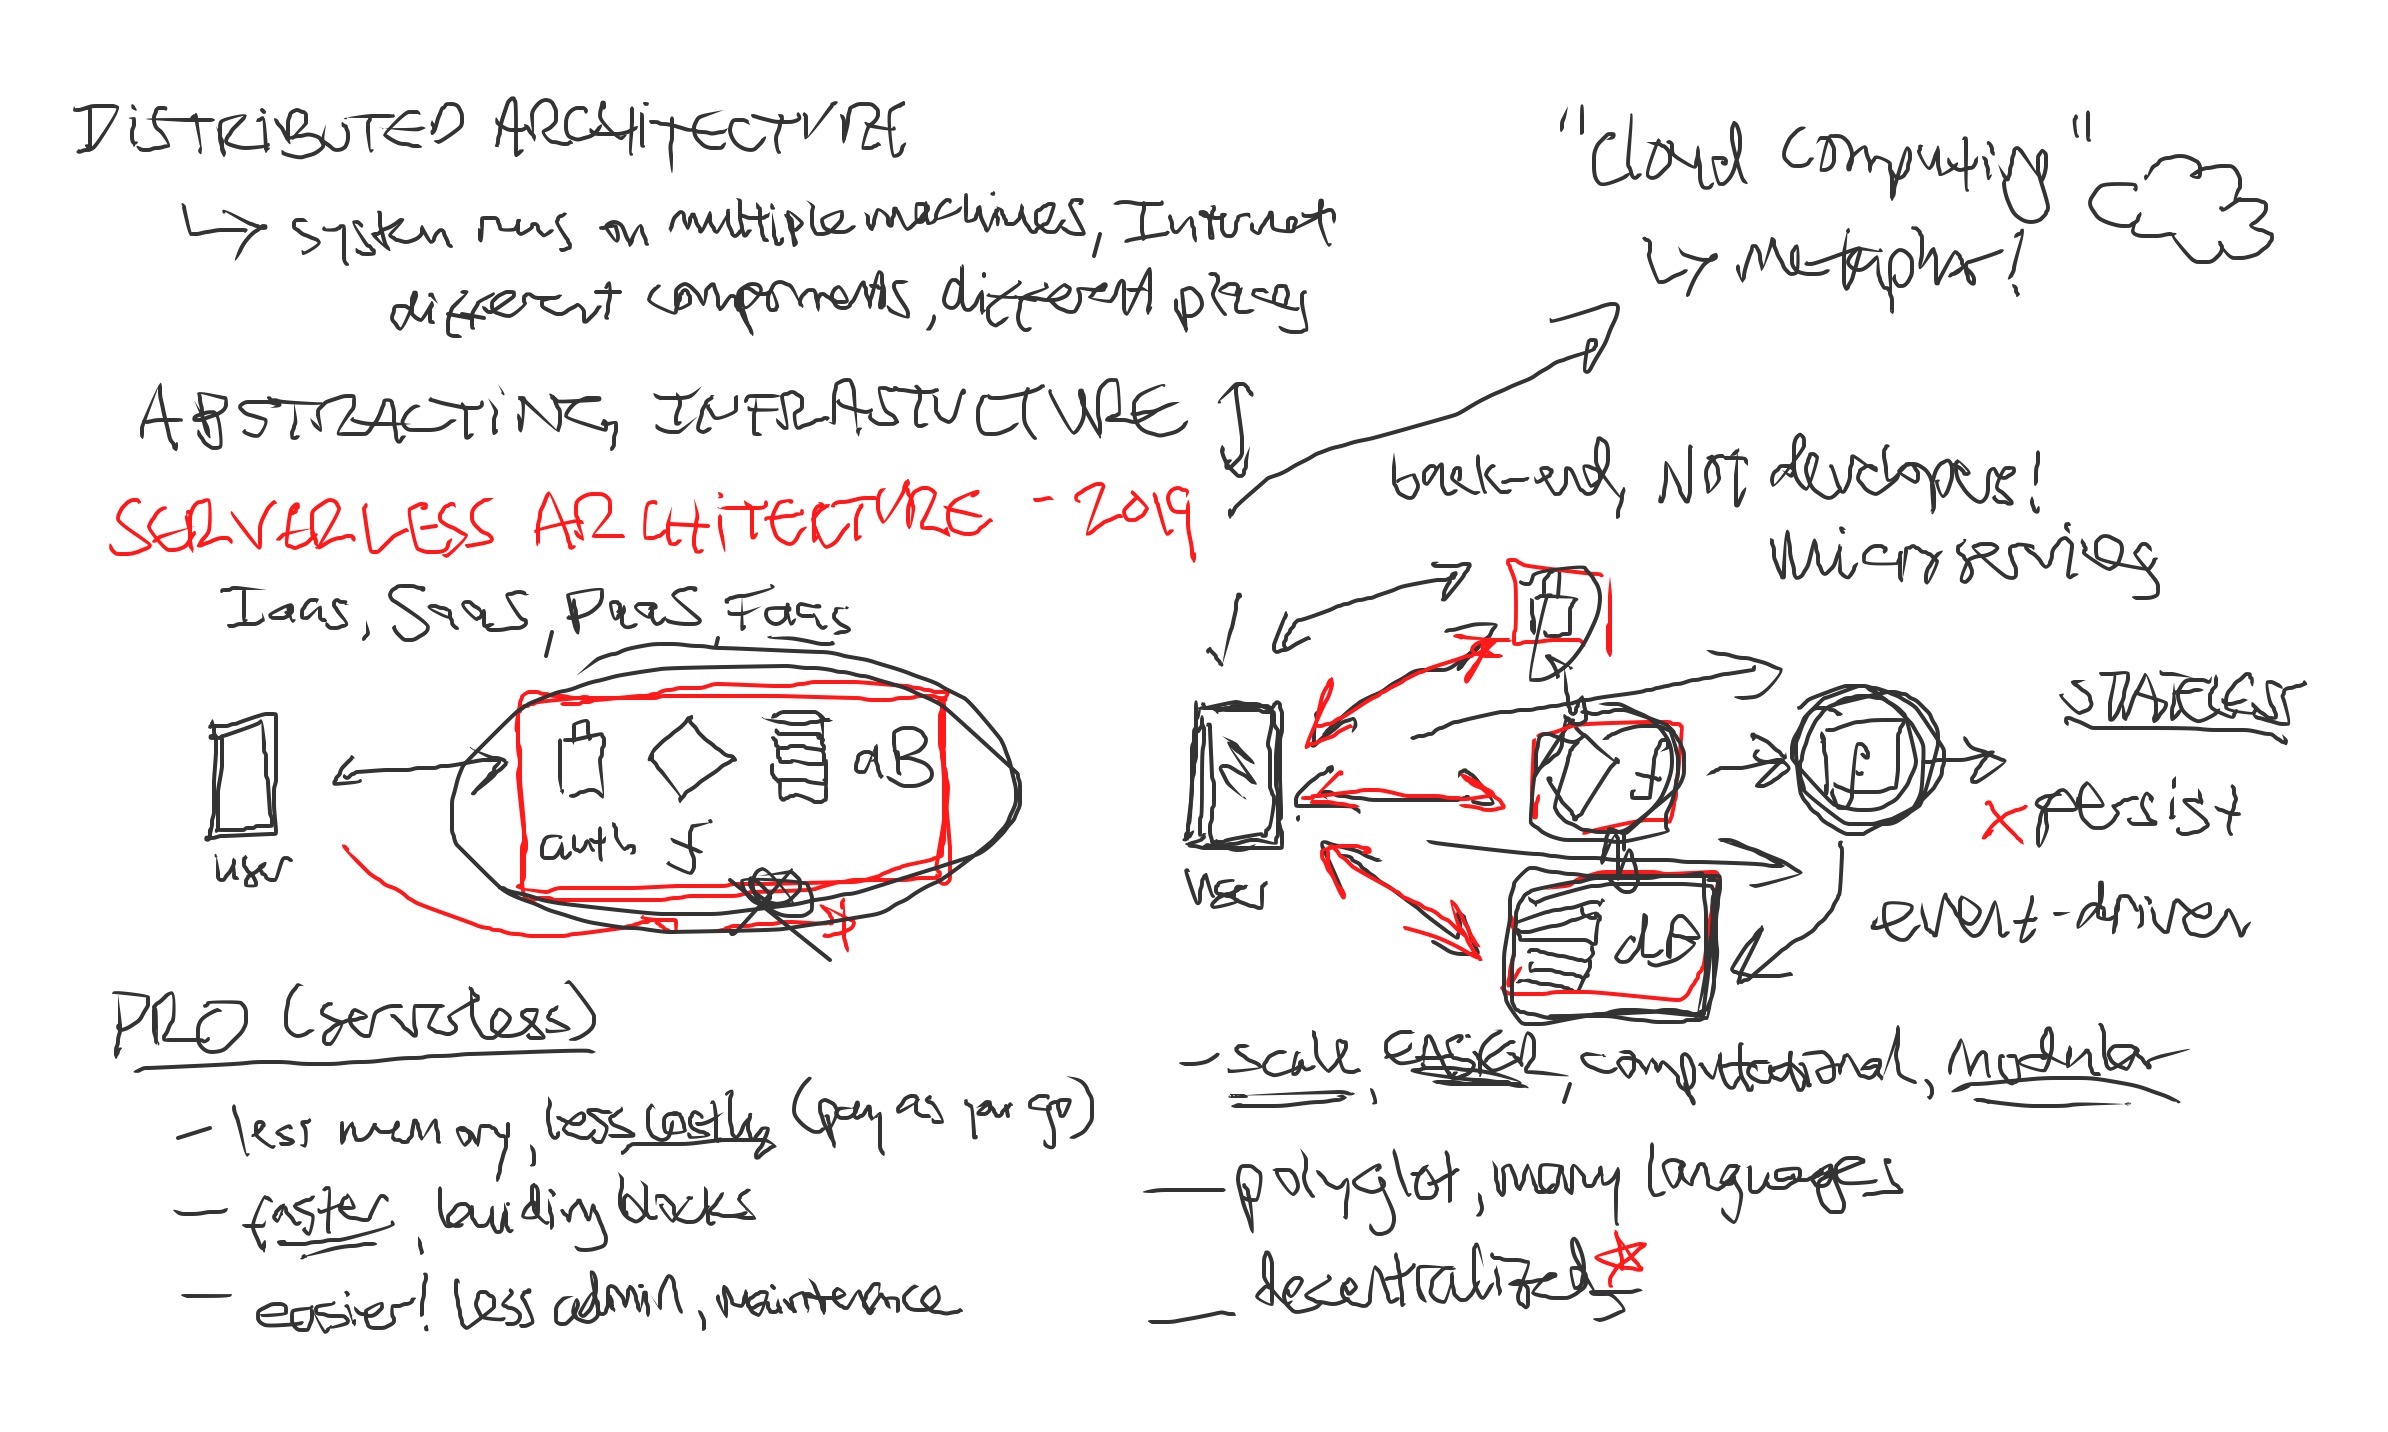 DISTRIBUTED ARCHITECTURE
system runs on multiple machines, Internet
different components, different places
"Cloud computing"
metaphor!
ABSTRACTING INFRASTUCTURE
SERVERLESS ARCHITECTURE - 2019
IaaS, SaaS, PaaS, FaaS
back-end, NOT developers!
Microservices
user
auth f
dB
user
f
dB
f
STATELESS
x persist
event-driven
PRO (serverless)
- less memory, less costly (pay as you go)
- faster, building blocks
- easier! less admin, maintenance
- scale, EASIER, computational, modular
- polyglot, many languages
- decentralized